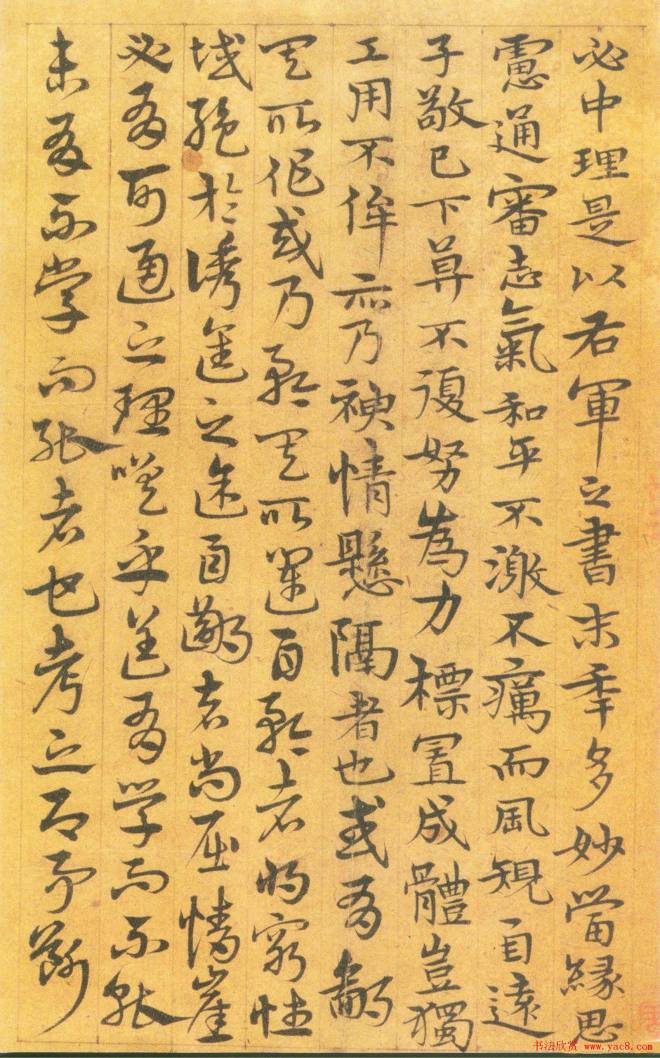 必中理是以右軍之書末秊多妙當緣思
慮通審志氣和平不激不癘而風規自遠
子敬已下莫不鼓努為力標置成體豈獨
工用不侔亦乃神情懸隔者也或有鄙
其所作或乃矜其所運自矜者將窮性
域絕於誘進之途自鄙者尚屈情崖
必有可通之理嗟乎蓋有學而不能
未有不學而能者也考之即事斷
书法欣赏 www.yac8.com